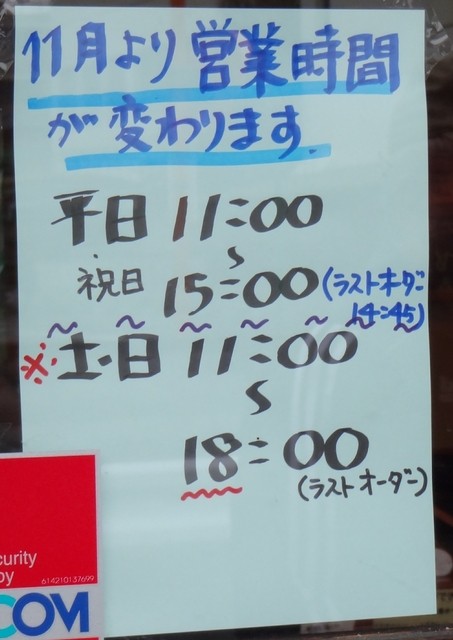 11月より営業時間
が変わります.
平日 11:00
〜
祝日 15:00(ラストオーダー
14:45)
※土・日 11:00
〜
18:00
(ラストオーダー)
curity
by
614210137699
COM